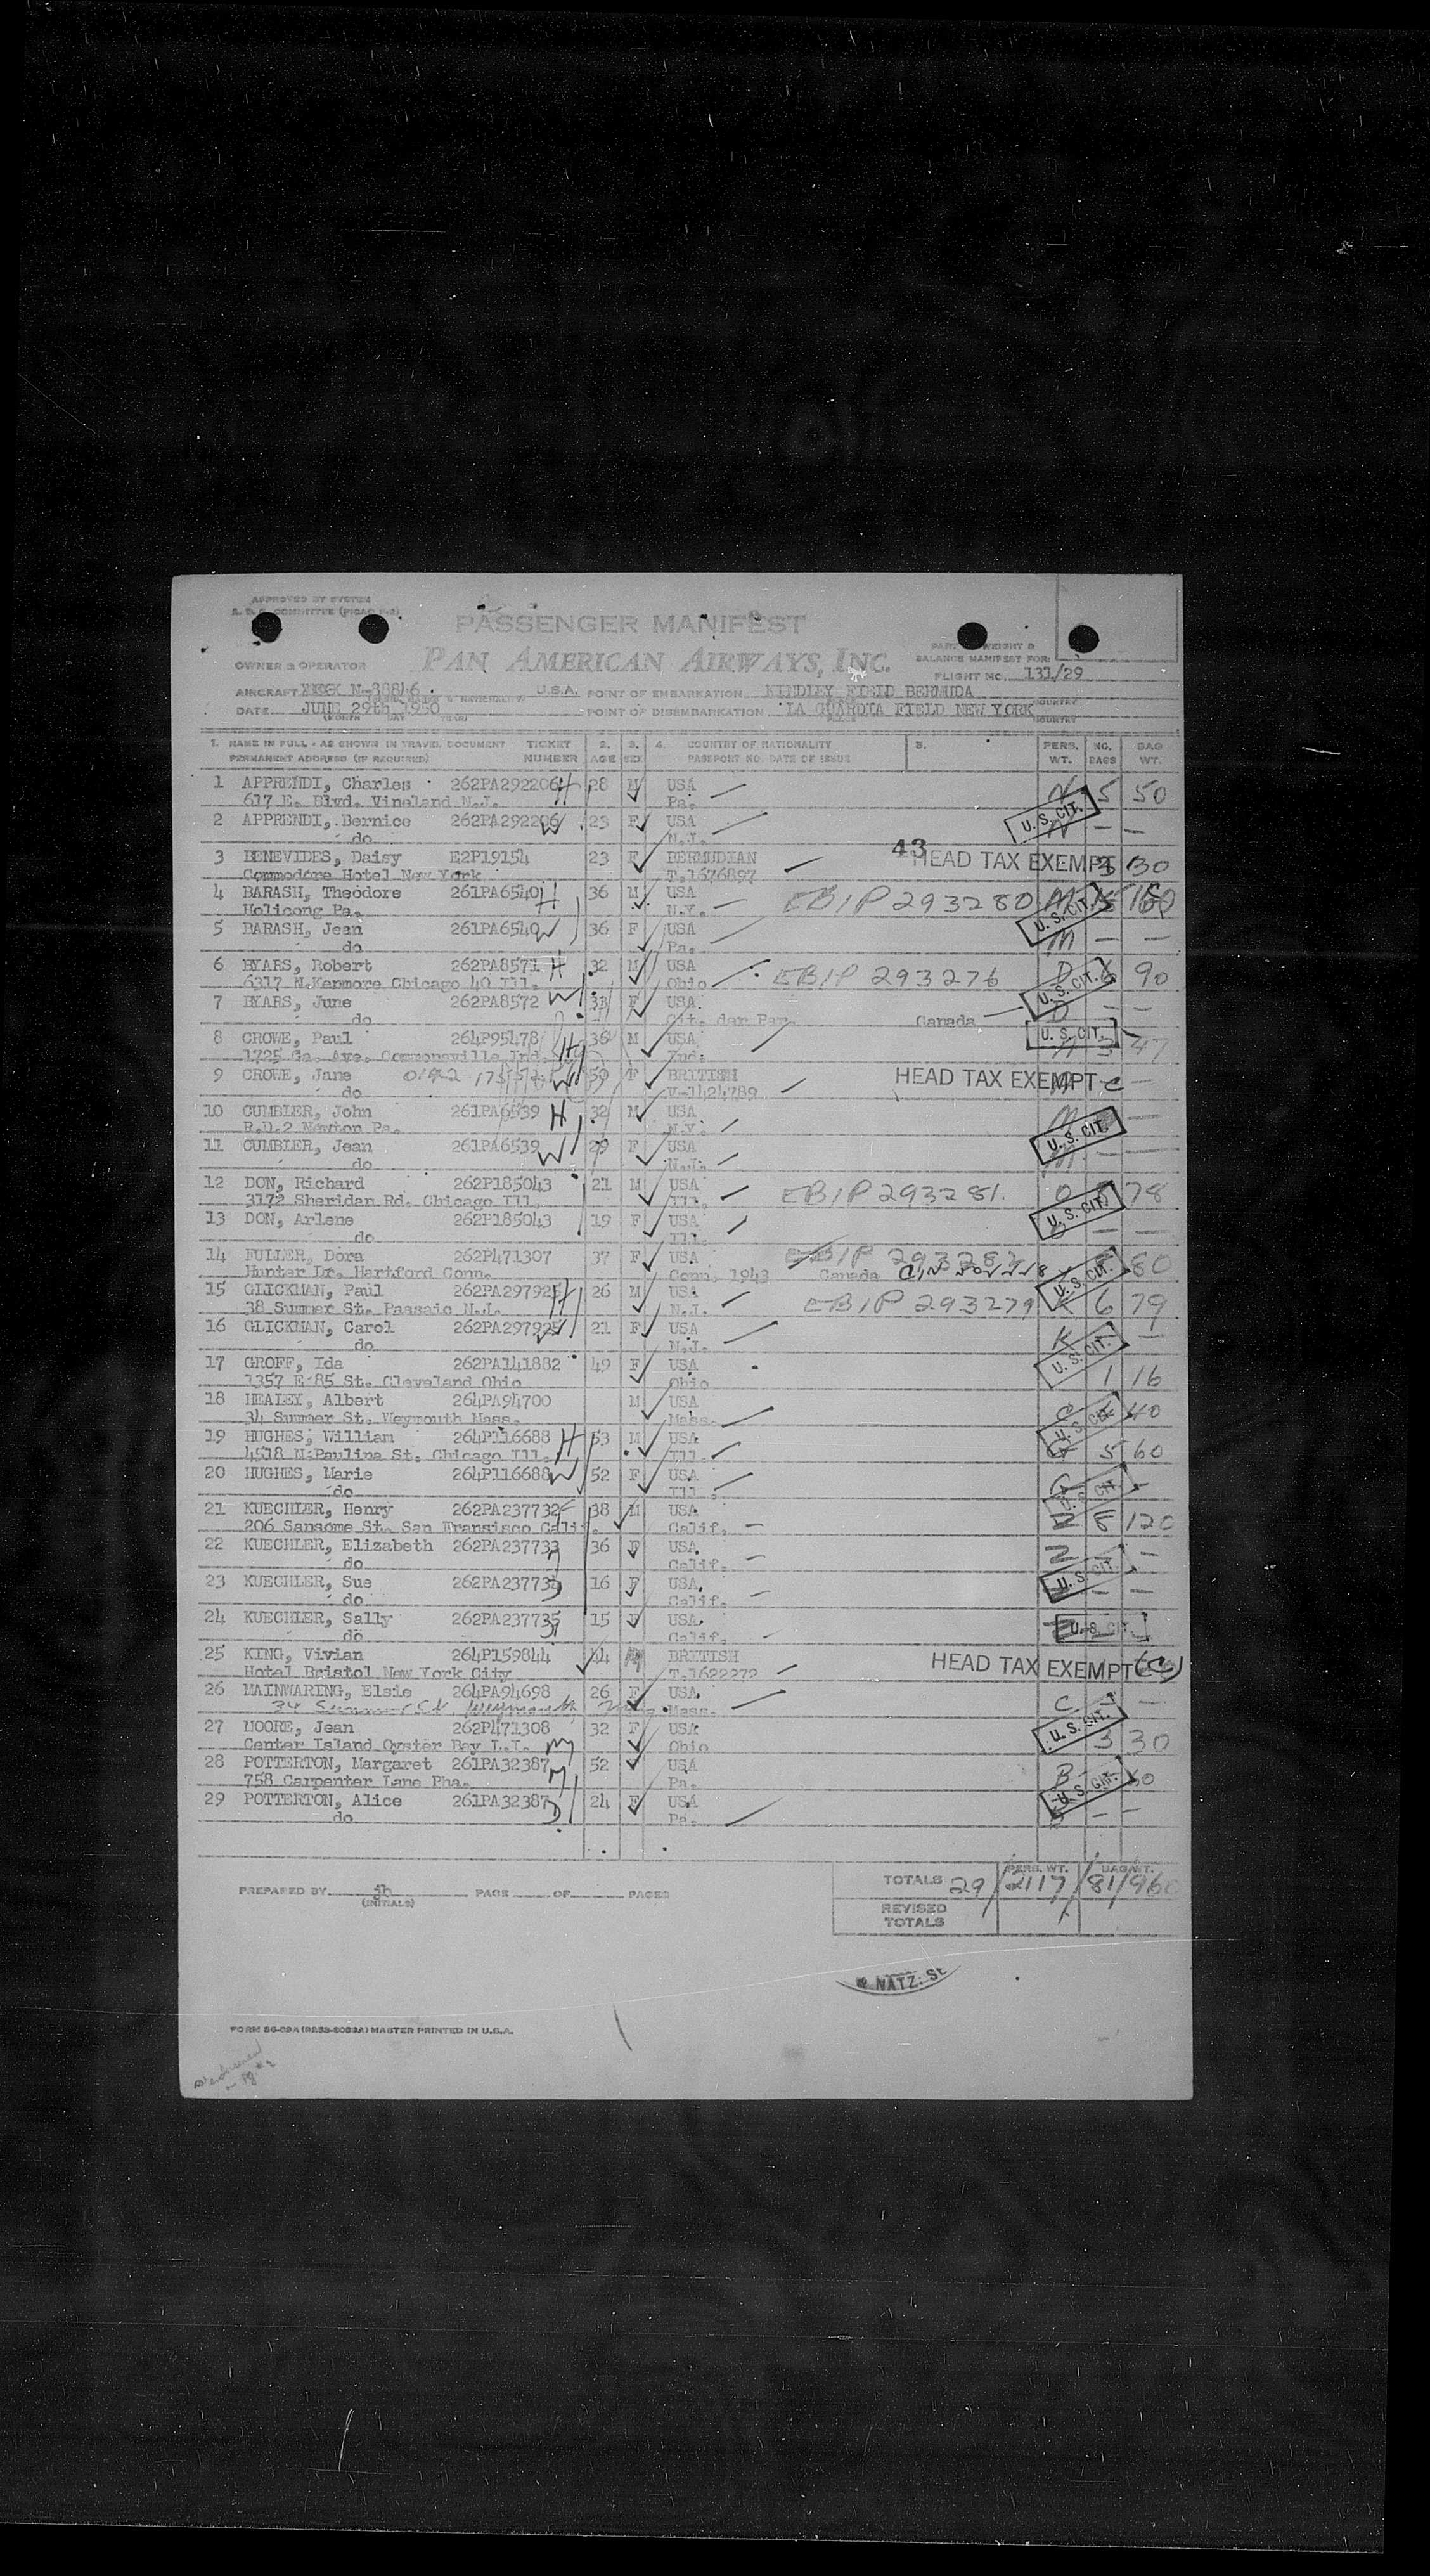 APPROVED BY SYSTEM
PASSENGER MANIFEST
PAN AMERICAN AIRWAYS, INC.
PART WEIGHT &
BALANCE MANIFEST FOR:
OWNER & OPERATOR
FLIGHT NO. 131/29
AIRCRAFT N-88846 U.S.A. POINT OF EMBARKATION KINDLEY FIELD BERMUDA
DATE JUNE 29th 1950 POINT OF DISEMBARKATION LA GUARDIA FIELD NEW YORK
1. NAME IN FULL - AS SHOWN IN TRAVEL DOCUMENT TICKET 2. 3. 4. COUNTRY OF NATIONALITY 5. PERS. NO. BAG
PERMANENT ADDRESS (IF REQUIRED) NUMBER AGE SEX PASSPORT NO. DATE OF ISSUE WT. BAGS WT.
1 APPRENDI, Charles 262PA292206 H 28 M USA N 5 50
617 E. Blvd. Vineland N.J. Pa.
U. S. CIT.
2 APPRENDI, Bernice 262PA292206 W 23 F USA — —
do N.J.
3 BENEVIDES, Daisy E2P19154 23 F BERMUDIAN 43 HEAD TAX EXEMPT 3 30
Commodore Hotel New York T.1676897
4 BARASH, Theodore 261PA6540 H 36 M USA EBIP 293280 M
Holicong Pa. N.Y.
U. S. CIT.
5 BARASH, Jean 261PA6540 W 36 F USA M — —
do Pa.
6 BYARS, Robert 262PA8571 H 32 M USA EBIP 293276 D 6 90
6317 N.Kenmore Chicago 40 Ill. Ohio
U. S. CIT.
7 BYARS, June 262PA8572 W 33 F USA. D — —
do Cit. der Par Canada
8 CROWE, Paul 264P95478 H 36 M USA U. S. CIT. 47
1725 Ga. Ave. Ind. Ind.
9 CROWE, Jane W 50 F BRITISH HEAD TAX EXEMPT C —
do V-1424789
10 CUMBLER, John 261PA6539 H 32 M USA M —
R.D.2 Newton Pa. N.Y.
U. S. CIT.
11 CUMBLER, Jean 261PA6539 W 29 F USA M — —
do N.J.
12 DON, Richard 262P185043 21 M USA EBIP 293281. O 78
3172 Sheridan Rd. Chicago Ill Ill.
U. S. CIT.
13 DON, Arlene 262P185043 19 F USA — —
do Ill.
14 FULLER, Dora 262P471307 37 F USA 60
Hunter Dr. Hartford Conn. Conn. 1943 Canada
U. S. CIT.
15 GLICKMAN, Paul 262PA297925 H 26 M USA EBIP 293279 K 6 79
38 Summer St. Passaic N.J. N.J.
16 GLICKMAN, Carol 262PA297925 W 21 F USA K —
do N.J.
U. S. CIT.
17 GROFF, Ida 262PA141882 49 F USA 1 16
1357 E 85 St. Cleveland Ohio Ohio
18 HEALEY, Albert 264PA94700 M USA C 40
34 Summer St. Weymouth Mass. Mass.
U. S. CIT.
19 HUGHES, William 264P116688 H 53 M USA G 5 60
4518 N.Paulina St. Chicago Ill. Ill.
20 HUGHES, Marie 264P116688 W 52 F USA G —
do Ill.
U. S. CIT.
21 KUECHLER, Henry 262PA237732 38 M USA 120
206 Sansome St. San Fransisco Calif. Calif.
22 KUECHLER, Elizabeth 262PA237733 36 F USA. —
do Calif.
U. S. CIT.
23 KUECHLER, Sue 262PA237735 16 F USA. — —
do Calif.
24 KUECHLER, Sally 262PA237735 15 F USA. U. S. CIT.
do Calif.
25 KING, Vivian 264P159844 44 BRITISH HEAD TAX EXEMPT (C)
Hotel Bristol New York City T.1622272
26 MAINWARING, Elsie 264PA94698 26 F USA. C — —
34 Summer St Weymouth Mass. Mass.
U. S. CIT.
27 MOORE, Jean 262P471308 32 F USA 3 30
Center Island Oyster Bay L.I. Ohio
28 POTTERTON, Margaret 261PA32387 M 52 USA B
758 Carpenter Lane Pha. Pa.
U. S. CIT.
29 POTTERTON, Alice 261PA32387 D 24 F USA — —
do Pa.
PERS. WT. BAG WT.
TOTALS 29 2117 81/960
PREPARED BY jh PAGE OF PAGES
(INITIALS)
REVISED
TOTALS
& NATZ. S
FORM 86-89A MASTER PRINTED IN U.S.A.